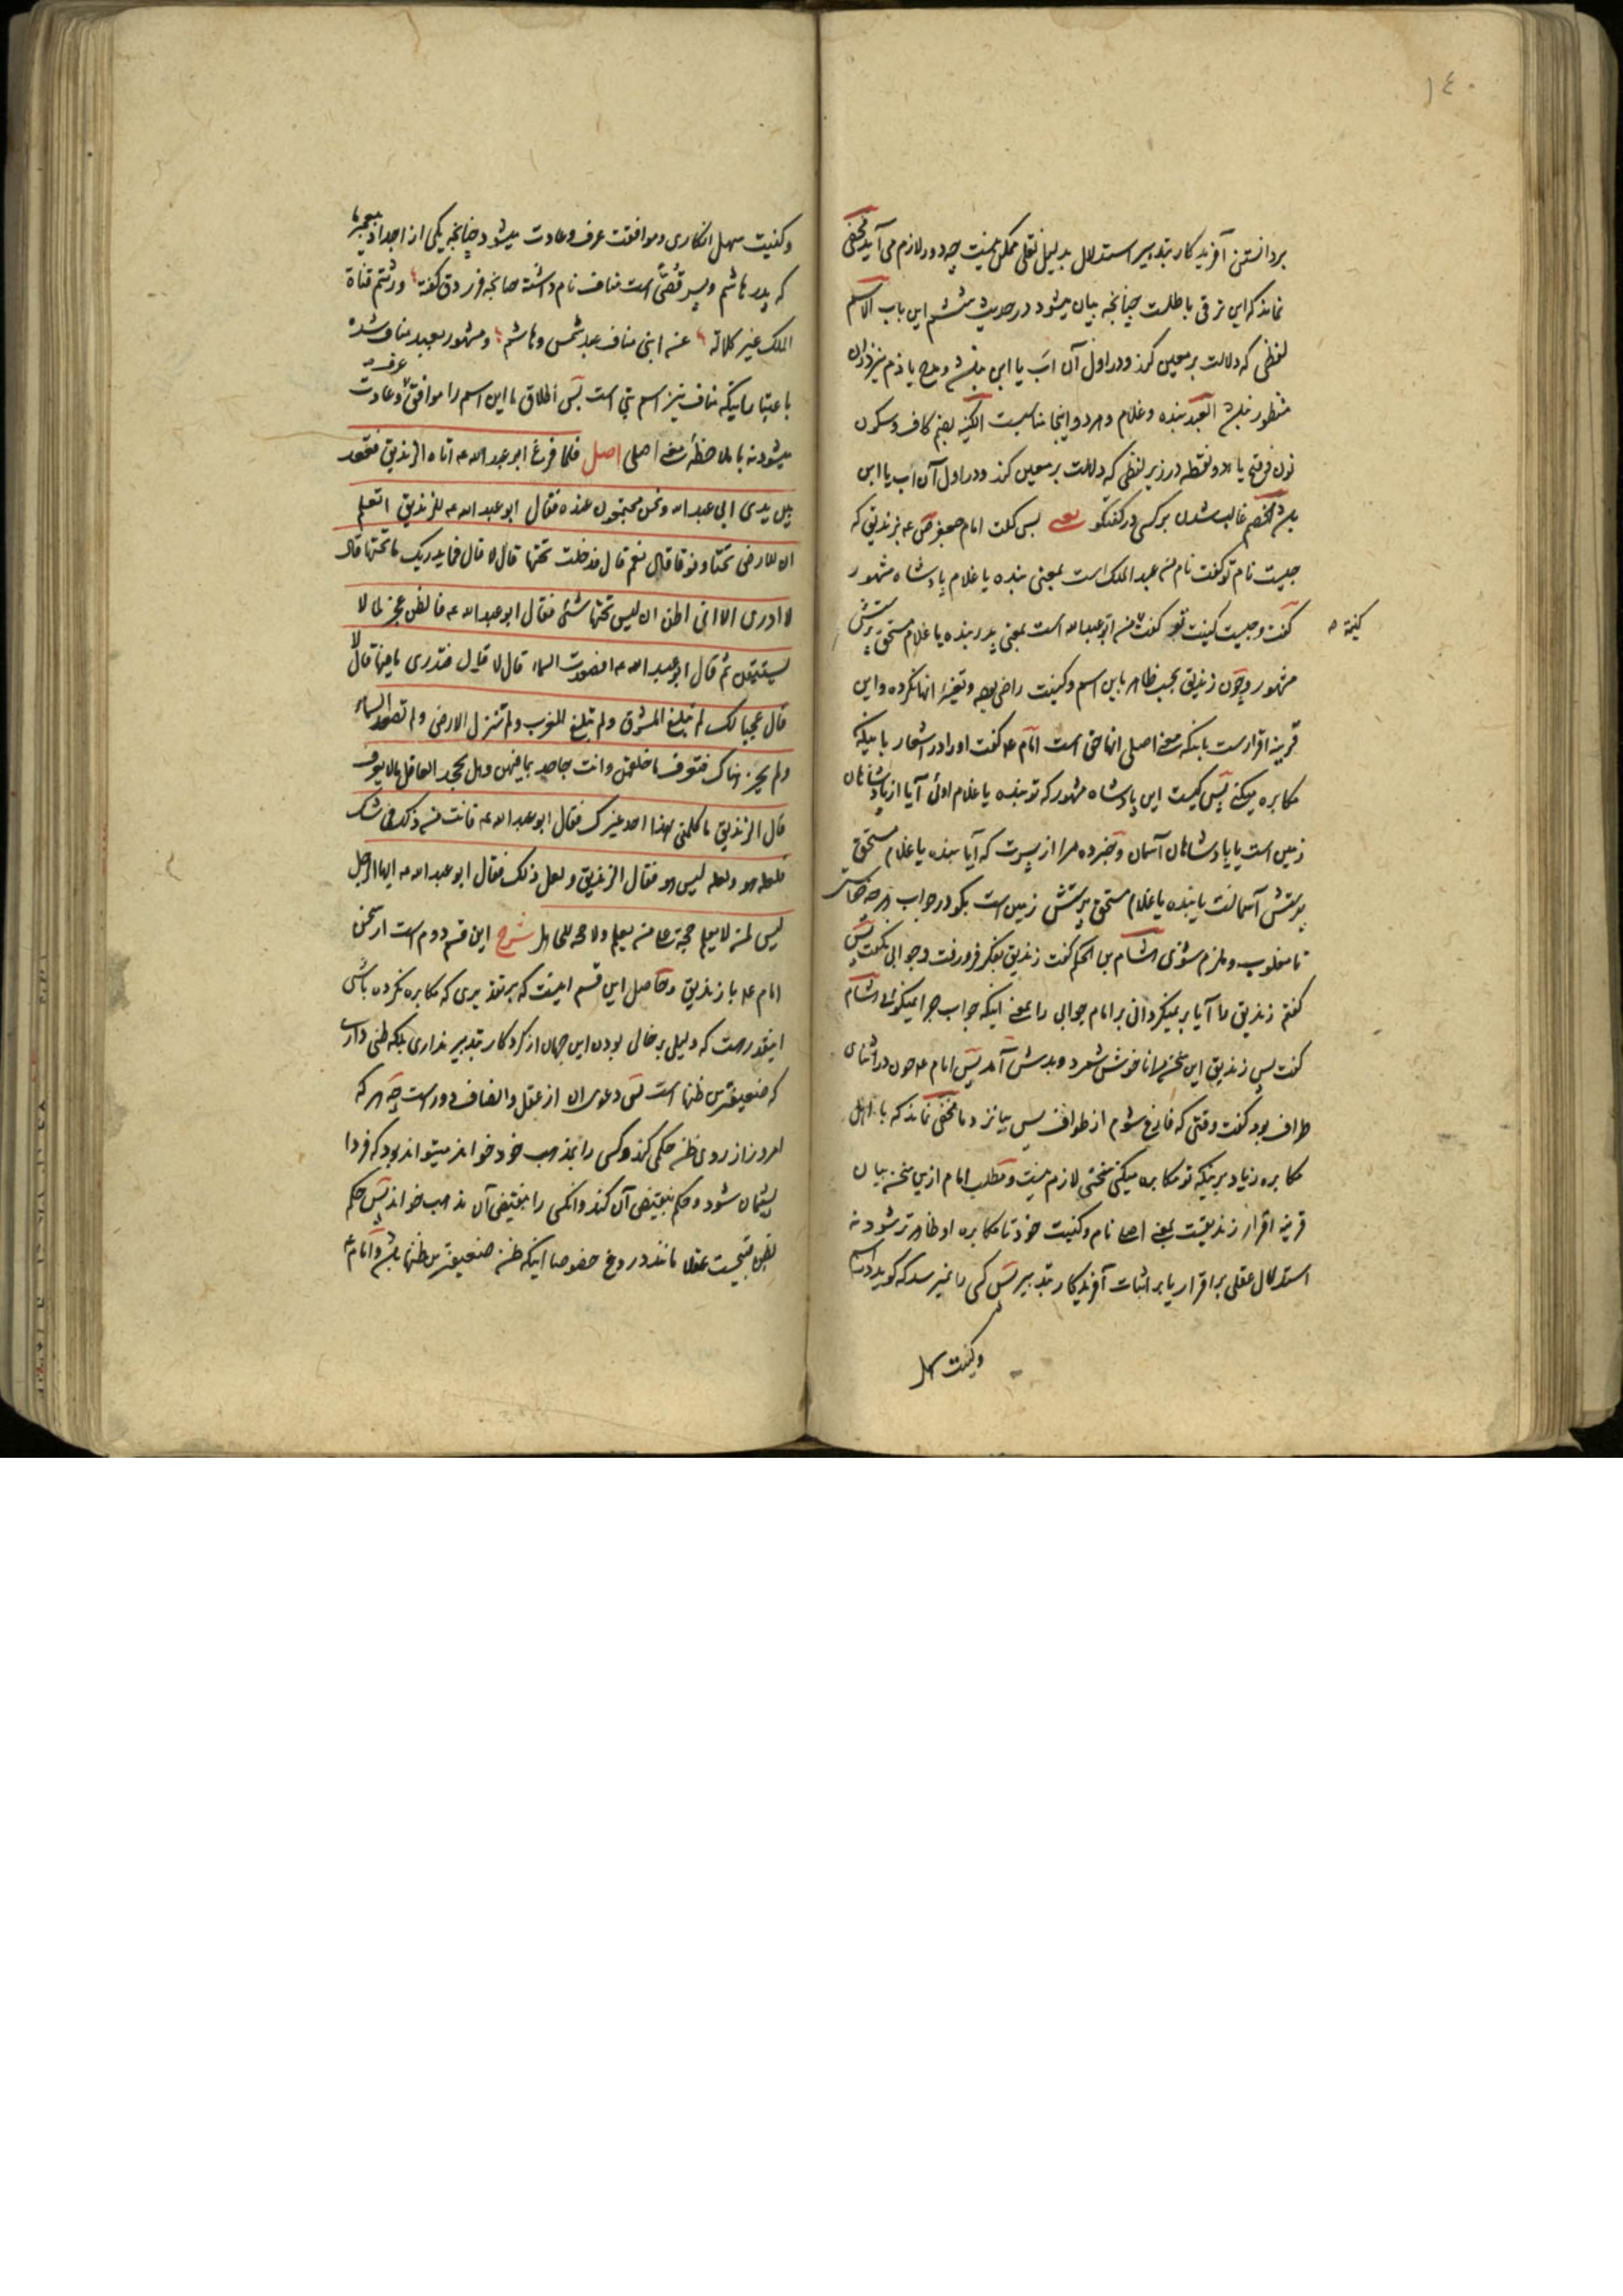 ١٤٠
بردانستن آفریدگار بتدبیر استدلال بدلیل نقلی ممکن نیست چه دور لازم می آید مخفی
نماند که این ترقی باطلست چنانچه بیان میشود در حدیث ششم این باب الاسم
لفظی که دلالت بر معین کند و در اول آن اب یا ابن نباشد و مدح یا ذم نیز در ان
منظور نباشد العبد بنده و غلام و هر دو اینجا مناسبت الکنیه بضم کاف و سکون
نون و فتح یاء دو نقطه در زیر لفظی که دلالت بر معین کند و در اول آن اب یا ابن
باشد الخصم غالب شدن بر کسی در گفتگو یعنی پس گفت امام جعفر ص ع بزندیق که
چیست نام تو گفت نام من عبد الملک است بمعنی بنده یا غلام پادشاه مشهور
گفت و چیست کنیت تو گفت من ابو عبد الله است بمعنی پدر بنده یا غلام مستحق پرستش
کنیة
مشهور و چون زندیق بحسب ظاهر باین اسم و کنیت راضی بوده و تغییر انها نکرده و این
قرینه اقرارست باینکه معنی اصلی انها حق است امام ع گفت او را در اشعار باینکه
مکابره میکنی پس کیست این پادشاه مشهور که تو بنده یا غلام اوئی آیا از پادشاهان
زمین است یا پادشاهان آسمان و خبر ده مرا از پسرت که آیا بنده یا غلام مستحق
پرستش آسمانست یا بنده یا غلام مستحق پرستش زمین است بگو در جواب هر چه خواهی
تا مغلوب و ملزم شوی هشام بن الحکم گفت زندیق بفکر فرو رفت و جوابی نگفت پس
گفتم زندیق را آیا بر نمیگردانی بر امام جوابی را یعنی اینکه جواب چرا نمیگوئی هشام
گفت پس زندیق این سخن مرا ناخوش شمرد و بدش آمد پس امام ع چون در اثنای
طواف بود گفت وقتی که فارغ شوم از طواف پس بیا نزد ما مخفی نماند که با اهل
مکابره زیاد برینکه تو مکابره میکنی سختی لازم نیست و مطلب امام ازین سخن بیان
قرینه اقرار زندیقست بمعنی اصلی نام و کنیت خود تا مکابره او ظاهرتر شود نه
استدلال عقلی بر اقرار یا بر اثبات آفریدگار بتدبیر پس کسی را نمیرسد که گوید که اسم
و کنیت سهل
و کنیت سهل انکاری و موافقت عرف و عادت میشود چنانچه یکی از اجداد پیغمبر ما
که پدر هاشم و پسر قُصَیّ است مناف نام داشته چنانچه فرزدق گفته ورثتم قناة
الملک غیر کلالة عن ابنی مناف عبد شمس و هاشم و مشهور بعبد مناف شده
باعتبار اینکه مناف نیز اسم بتی است پس اطلاق ما این اسم را موافق عرف و عادت
میشود نه با ملاحظهٔ معنی اصلی اصل فلما فرغ ابو عبد الله ع اتاه الزندیق فقعد
بین یدی ابی عبد الله و نحن مجتمعون عنده فقال ابو عبد الله ع للزندیق اتعلم
ان للارض تحتا و فوقا قال نعم قال فدخلت تحتها قال لا قال فما یدریک ما تحتها قال
لا ادری الا انی اظن ان لیس تحتها شئ فقال ابو عبد الله ع فالظن عجز لما لا
یستیقن ثم قال ابو عبد الله ع افصعدت السماء قال لا قال فتدری ما فیها قال لا
قال عجبا لک لم تبلغ المشرق و لم تبلغ المغرب و لم تنزل الارض و لم تصعد السماء
و لم تجز هناک فتعرف ما خلفهن و انت جاحد بما فیهن و هل یجحد العاقل ما لا یعرف
قال الزندیق ما کلمنی بهذا احد غیرک فقال ابو عبد الله ع فانت من ذلک فی شک
فلعله هو و لعله لیس هو فقال الزندیق و لعل ذلک فقال ابو عبد الله ع ایها الرجل
لیس لمن لا یعلم حجة علی من یعلم و لا حجة للجاهل شرح این قسم دوم است از سخن
امام ع با زندیق و حاصل این قسم اینست که بر تقدیری که مکابره نکرده باشی
اینقدر هست که دلیلی بر خالی بودن این جهان از کردگار بتدبیر نداری بلکه ظنی داری
که ضعیفترین ظنها است پس دعوی ان از عقل و انصاف دورست چه هر که
امروز از روی ظن حکمی کند و کسی را بمذهب خود خواند میتواند بود که فردا
پشیمان شود و حکم بنقیض آن کند و انکس را بنقیض آن مذهب خواند پس حکم
بظن قبیحست عقلا مانند دروغ خصوصا اینکه ظن ضعیفترین ظنها باشد و امام ع